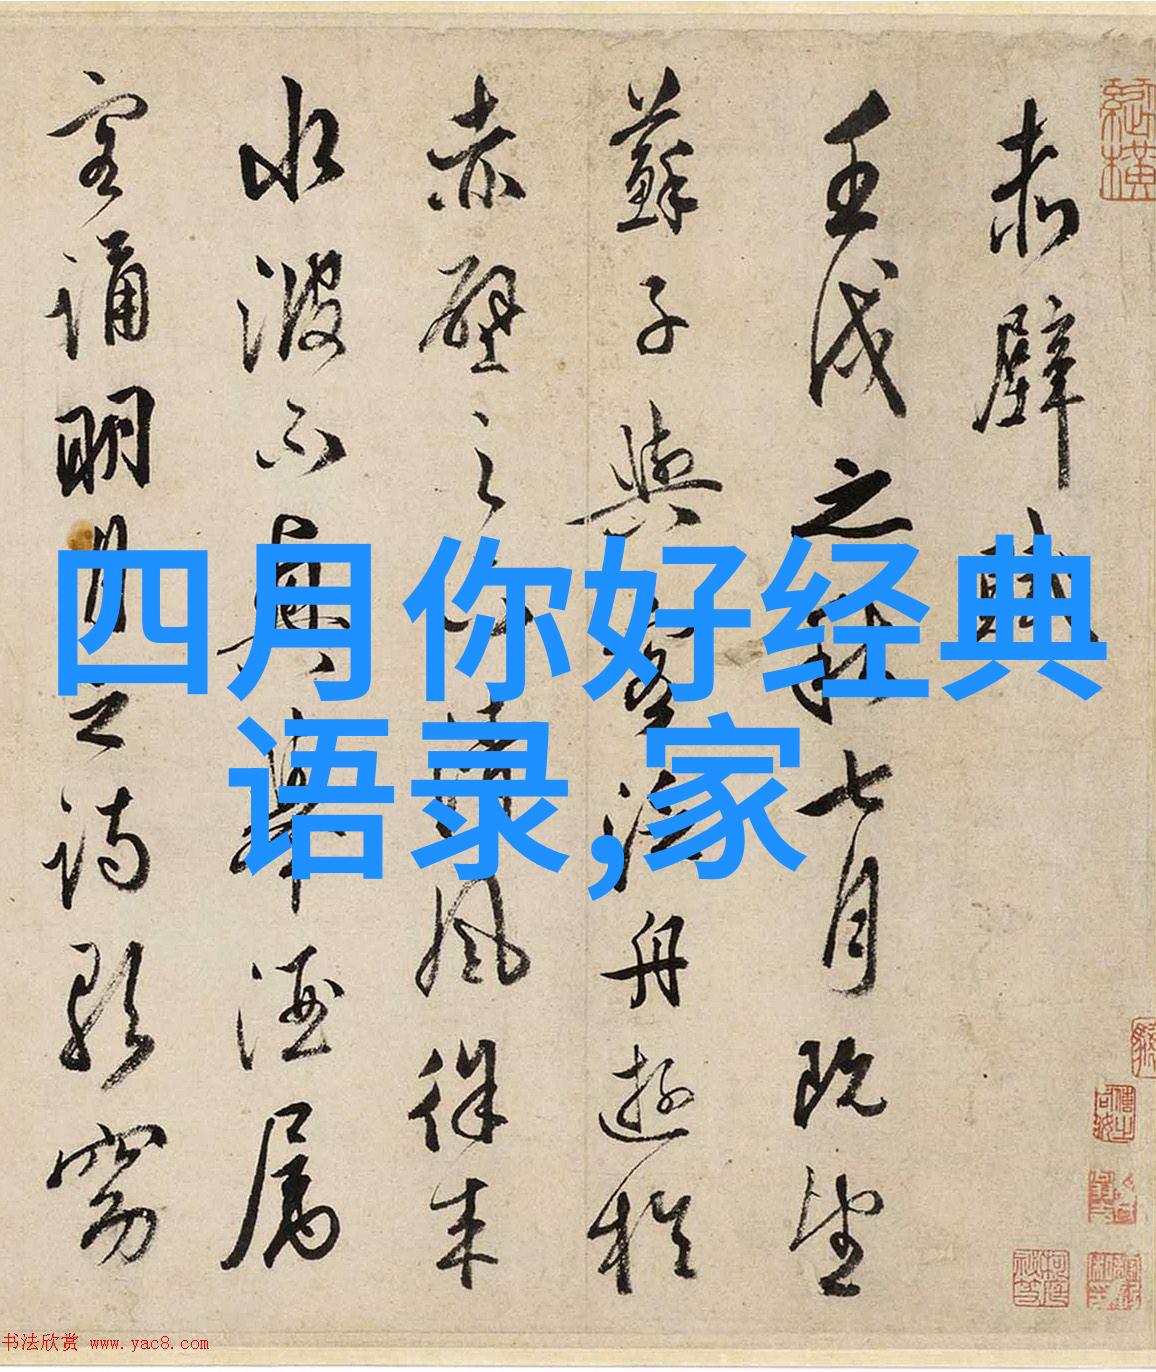 赤壁賦
壬戌之秋七月既望
蘇子與客泛舟遊於
赤壁之下清風徐來
水波不興舉酒属
客誦明月之詩歌窈
四月你好经典
语录,家
书法欣赏 www.yac8.com